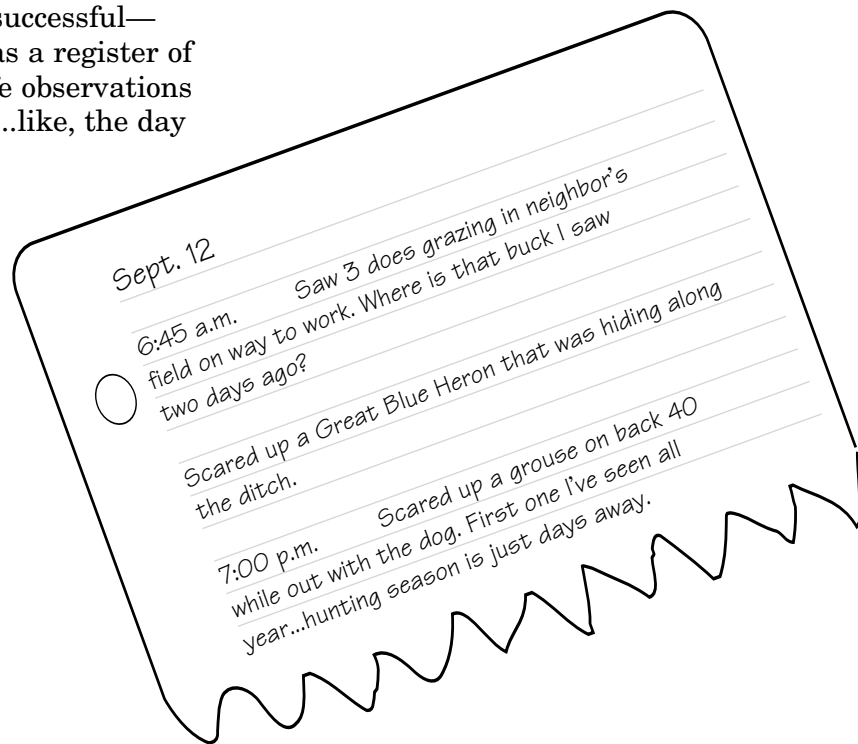 successful—
as a register of
e observations
...like, the day
Sept. 12
6:45 a.m. Saw 3 does grazing in neighbor's
field on way to work. Where is that buck I saw
two days ago?
Scared up a Great Blue Heron that was hiding along
the ditch.
7:00 p.m. Scared up a grouse on back 40
while out with the dog. First one I've seen all
year...hunting season is just days away.